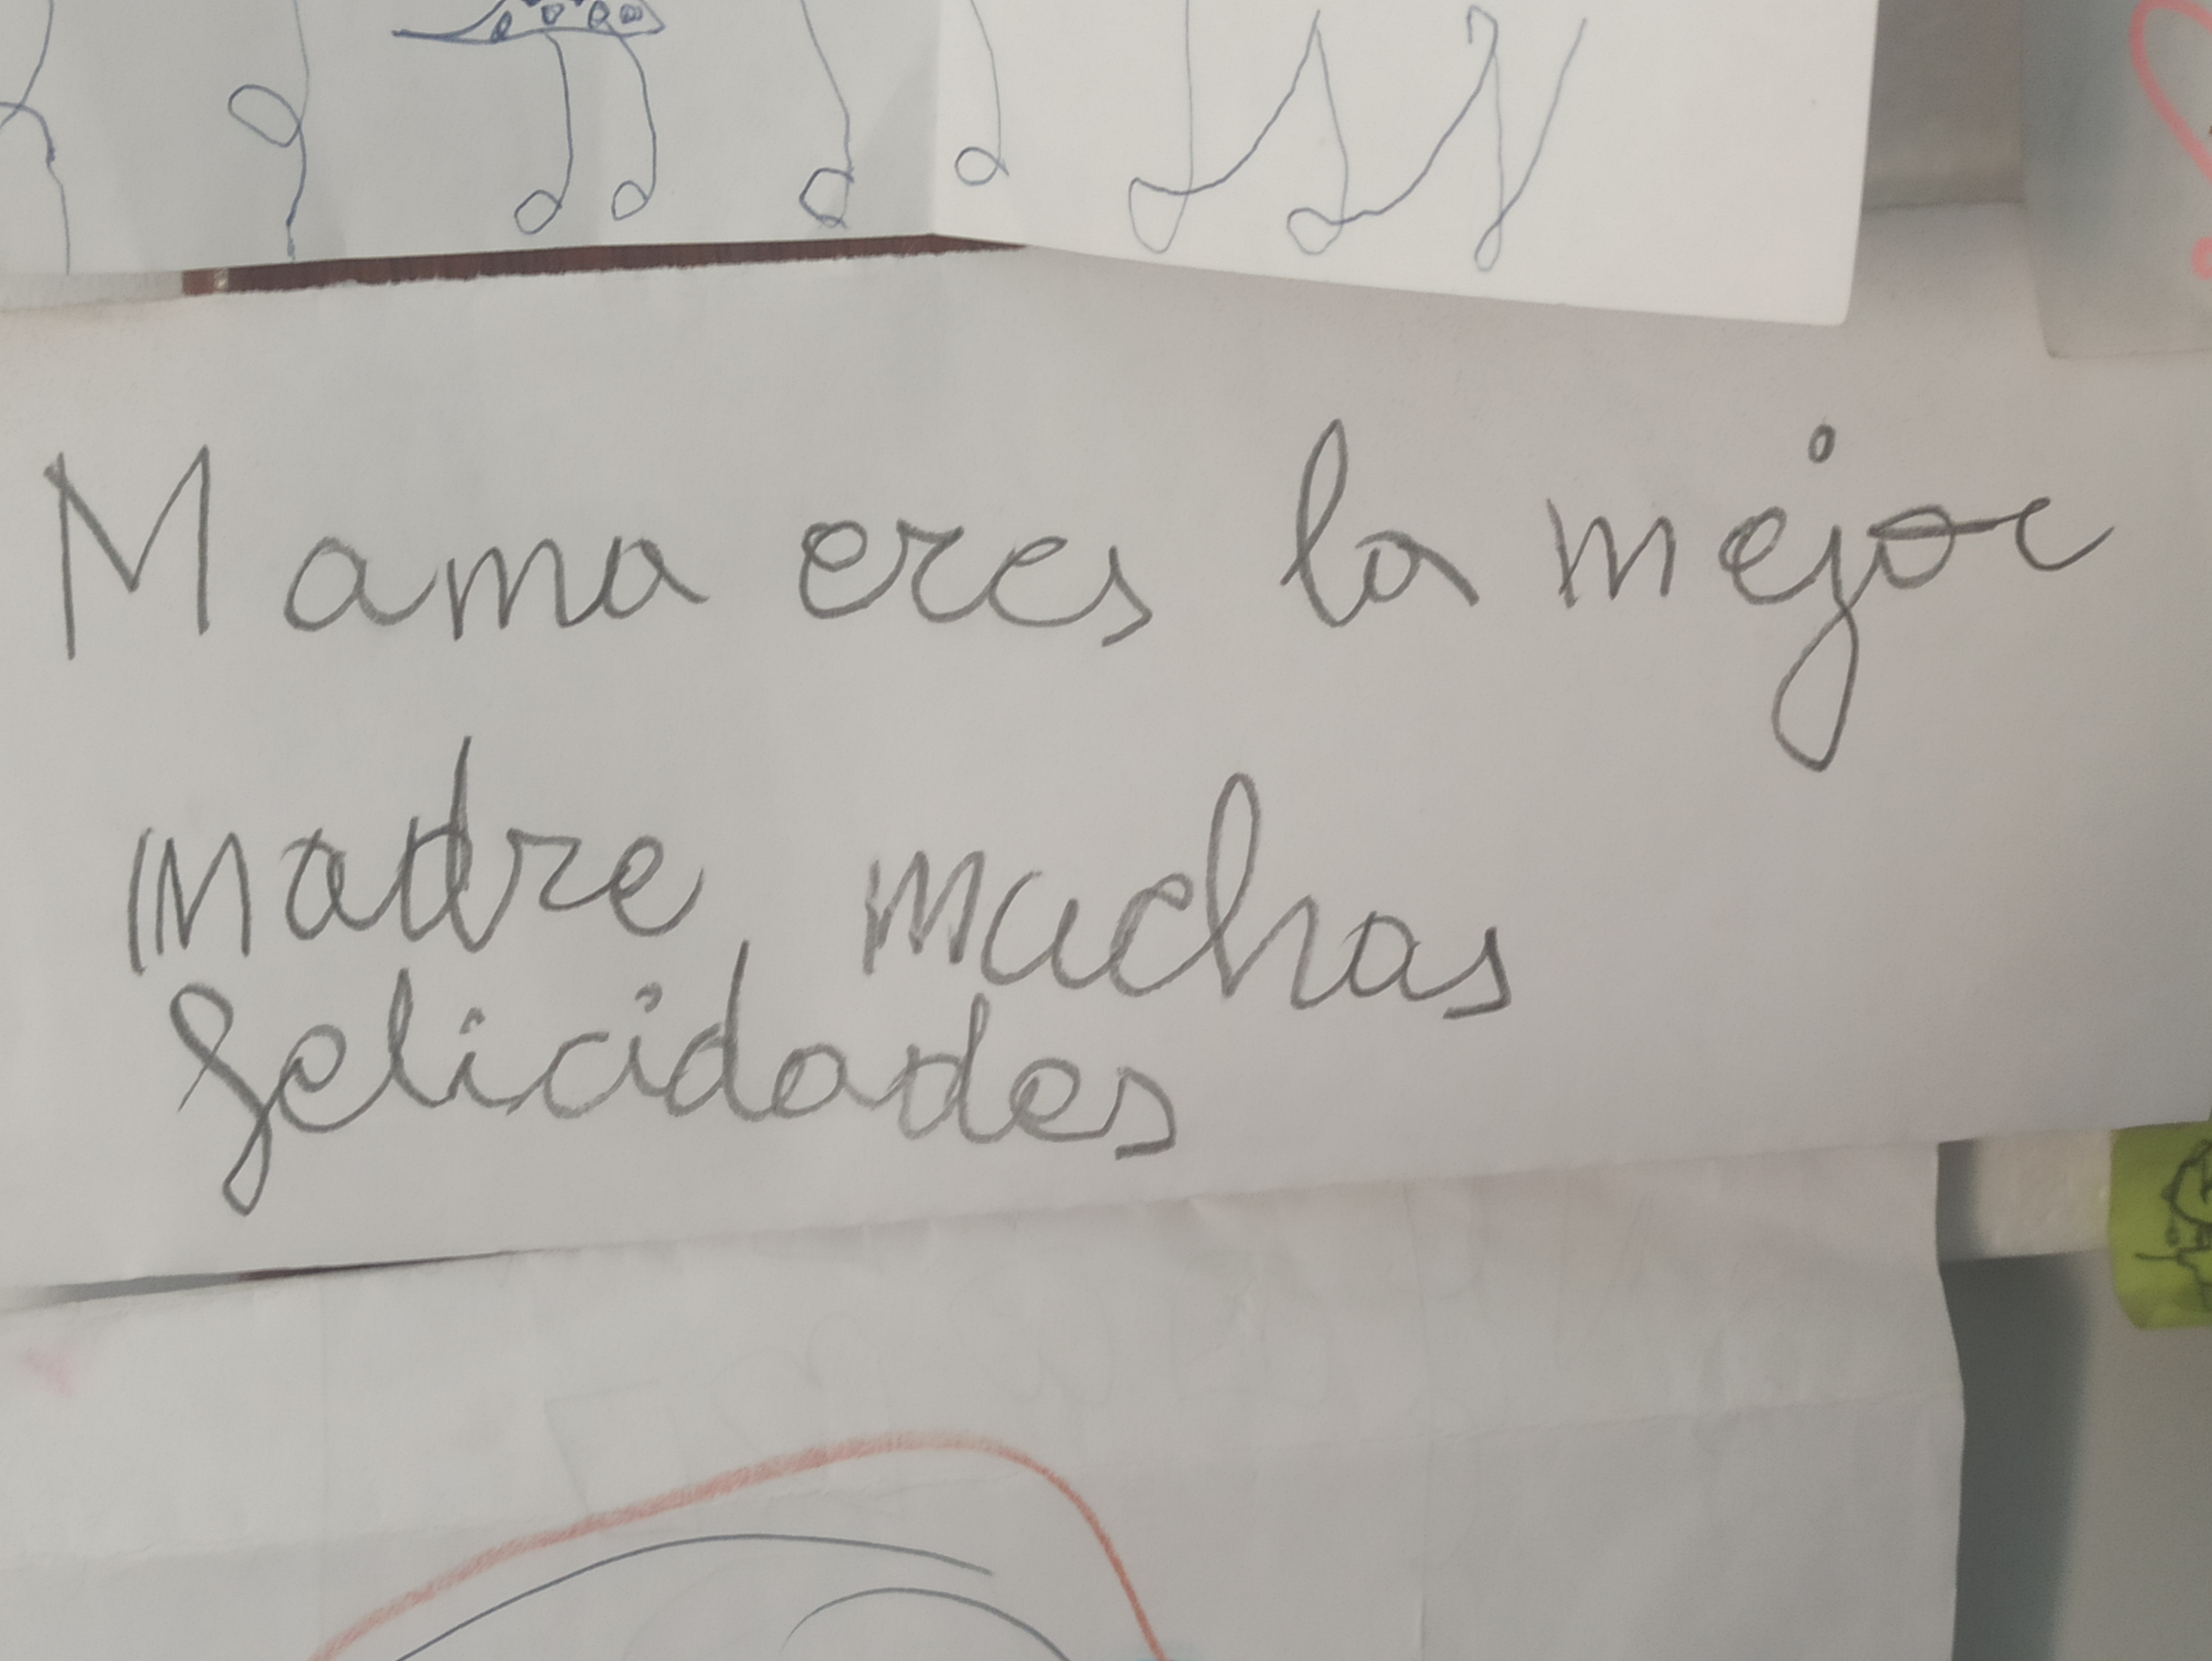 Mama eres la mejor
madre muchas
felicidades